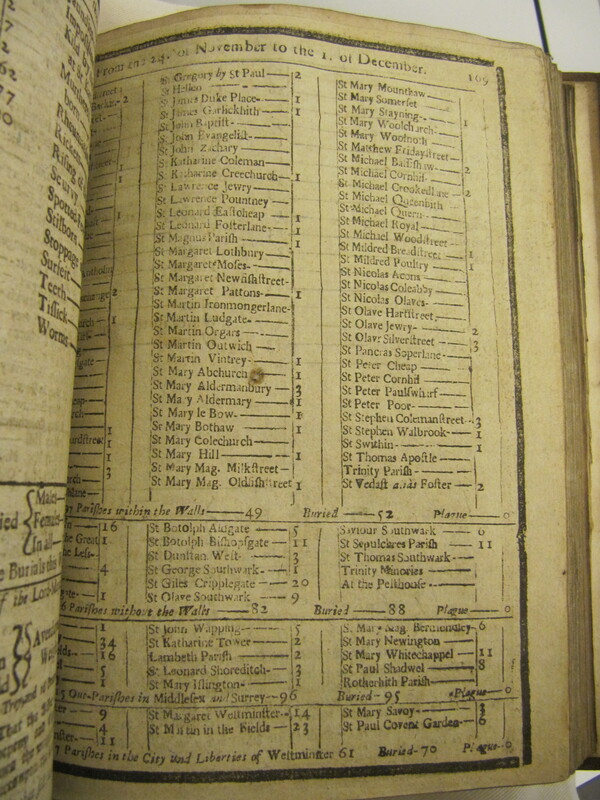 From the 24. of November to the 1. of December. 169
St Gregory by St Paul 2
St Hellen
St James Duke Place 1
St James Garlickhith 1
St John Baptist
St John Evangelist
St John Zachary
St Katharine Coleman
St Katharine Creechurch 1
St Lawrence Jewry
St Lawrence Pountney
St Leonard Eastcheap 1
St Leonard Fosterlane 1
St Magnus Parish 1
St Margaret Lothbury
St Margaret Moses
St Margaret Newfishstreet
St Margaret Pattons 1
St Martin Ironmongerlane
St Martin Ludgate
St Martin Orgars
St Martin Outwich
St Martin Vintrey 1
St Mary Abchurch 1
St Mary Aldermanbury 3
St Mary Aldermary 1
St Mary le Bow 1
St Mary Bothaw 1
St Mary Colechurch
St Mary Hill 1
St Mary Mag. Milkstreet
St Mary Mag. Oldfishstreet 1
St Mary Mounthaw
St Mary Somerset
St Mary Stayning
St Mary Woolchurch 1
St Mary Woolnoth
St Matthew Fridaystreet
St Michael Bassishaw 2
St Michael Cornhil
St Michael Crookedlane 2
St Michael Queenhith
St Michael Quern
St Michael Royal
St Michael Woodstreet
St Mildred Breadstreet 1
St Mildred Poultry 1
St Nicolas Acons
St Nicolas Coleabby
St Nicolas Olaves
St Olave Hartstreet
St Olave Jewry 2
St Olave Silverstreet 3
St Pancras Soperlane
St Peter Cheap
St Peter Cornhil
St Peter Paulswharf
St Peter Poor
St Stephen Colemanstreet 3
St Stephen Walbrook 1
St Swithin 1
St Thomas Apostle
Trinity Parish
St Vedast alias Foster 2
Parishes within the Walls 49 Buried 52 Plague 0
St Botolph Aldgate 5
St Botolph Bishopsgate 11
St Dunstan West 3
St George Southwark 1
St Giles Cripplegate 20
St Olave Southwark 9
Saviour Southwark 6
St Sepulchres Parish 11
St Thomas Southwark
Trinity Minories
At the Pesthouse
Parishes without the Walls 82 Buried 88 Plague 0
St John Wapping 5
St Katharine Tower 2
Lambeth Parish 2
St Leonard Shoreditch 3
St Mary Islington 1
S. Mary Mag. Bermondsey 6
St Mary Newington
St Mary Whitechappel 11
St Paul Shadwel 8
Rotherhith Parish
15 Out-Parishes in Middlesex and Surrey 96 Buried 95 Plague 0
St Margaret Westminster 14
St Martin in the Fields 23
St Mary Savoy 3
St Paul Covent Garden 6
7 Parishes in the City and Liberties of Westminster 61 Buried 70 Plague 0
Rising of
Scurvy
Stilborn
Stoppage
Surfeit
Teeth
Tissick
Worms